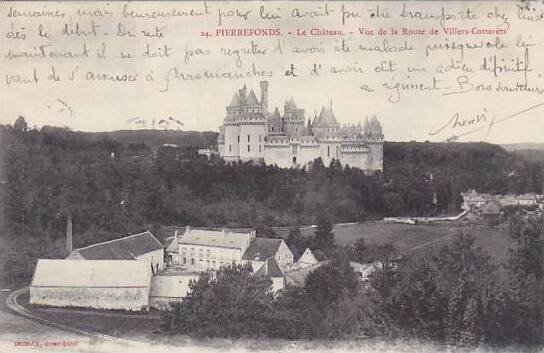 semaines, mais heureusement pour lui avait pu être transporté chez lui
24. PIERREFONDS. - Le Château. - Vue de la Route de Villers-Cotterets
dès le début. Du reste
maintenant il ne doit pas regretter d'avoir été malade puisque cela lui
vaut de s'amuser à Arromanches et d'avoir dit un adieu définitif
au régiment. Bons
Henri
DECELLE, COMPIÈGNE